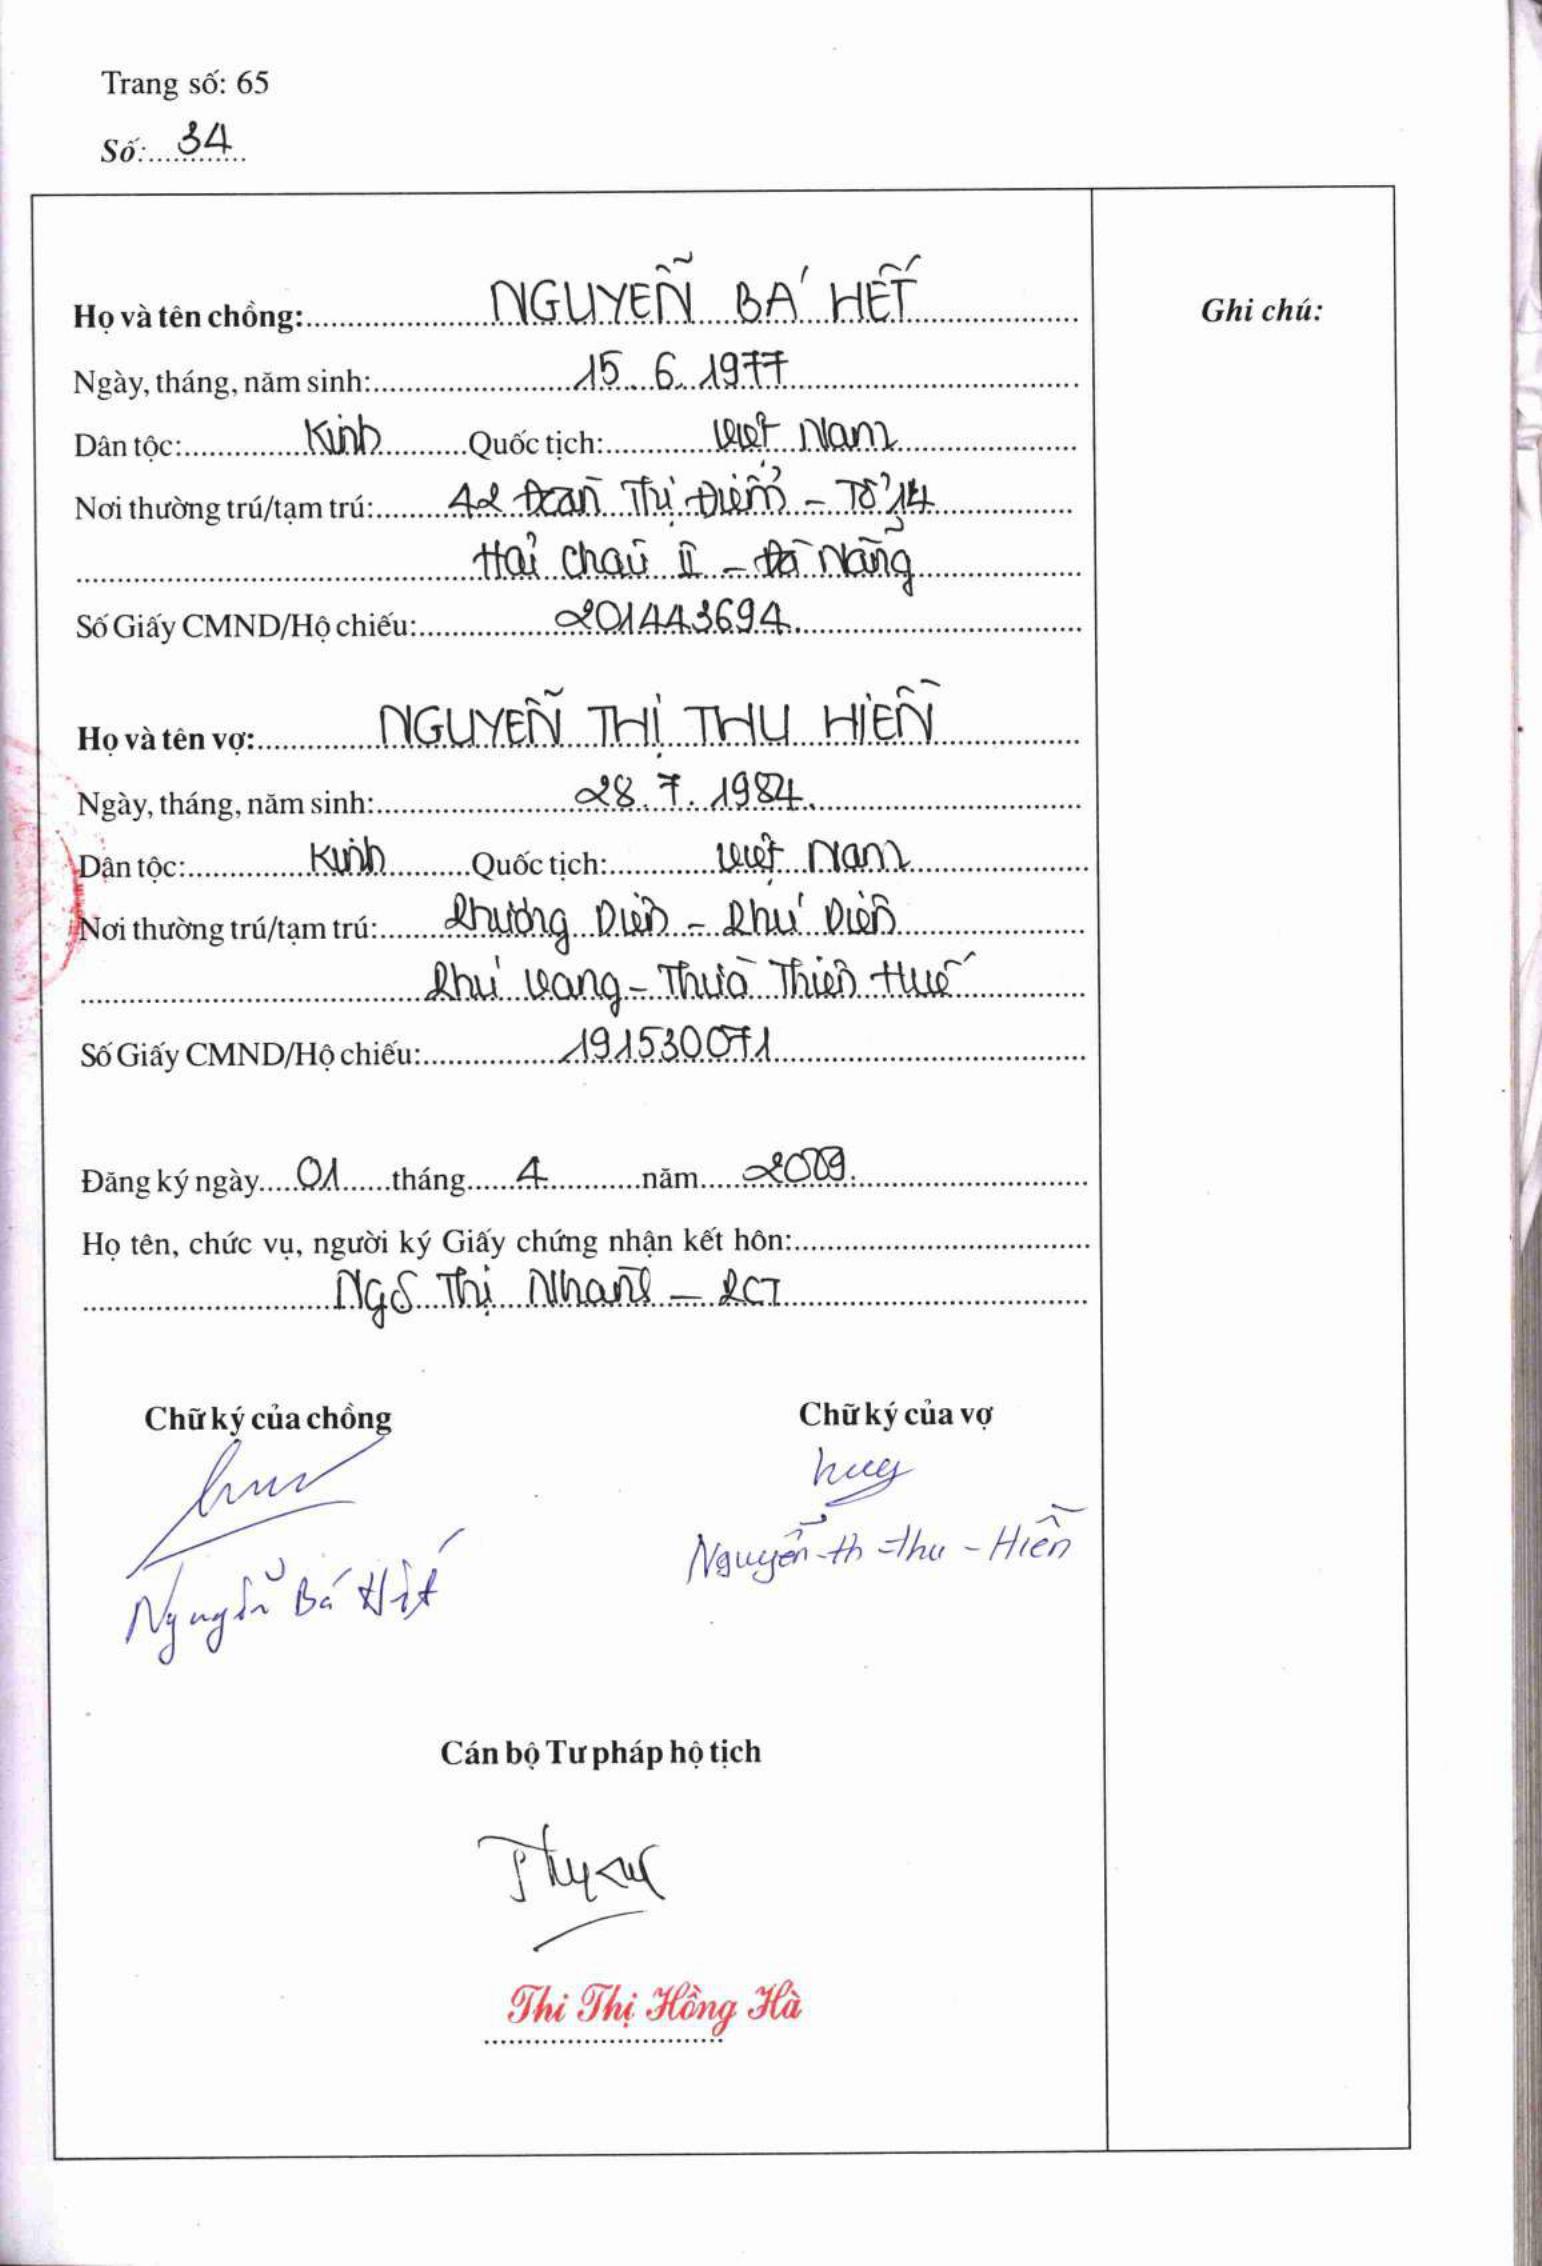 Trang số: 65
Số: 34
Họ và tên chồng: NGUYỄN BÁ HẾT
Ghi chú:
Ngày, tháng, năm sinh: 15.6.1977
Dân tộc: Kinh Quốc tịch: Việt Nam
Nơi thường trú/tạm trú: 42 Đoàn Thị Điểm - Tổ 14
Hải Châu II - Đà Nẵng
Số Giấy CMND/Hộ chiếu: 201443694
Họ và tên vợ: NGUYỄN THỊ THU HIỀN
Ngày, tháng, năm sinh: 28.7.1984
Dân tộc: Kinh Quốc tịch: Việt Nam
Nơi thường trú/tạm trú: Phương Diên - Phú Diên
Phú Vang - Thừa Thiên Huế
Số Giấy CMND/Hộ chiếu: 191530071
Đăng ký ngày 01 tháng 4 năm 2009
Họ tên, chức vụ, người ký Giấy chứng nhận kết hôn:
Ngô Thị Nhan - PCT
Chữ ký của chồng Chữ ký của vợ
Nguyễn Bá Hết Nguyễn-th-Thu-Hiền
Cán bộ Tư pháp hộ tịch
Thi Thị Hồng Hà